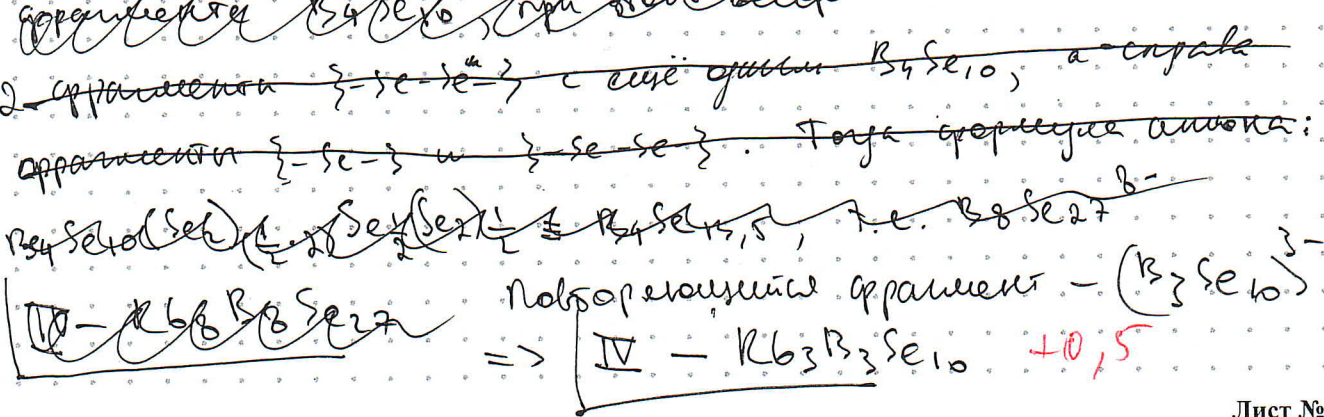 фрагмента B4Se10, при этом
2 фрагменты {-Se-Se-} с ещё одним B4Se10, а справа
фрагменты {-Se-} и {-Se-Se-}. Тогда формула аниона:
B4Se10(Se2) Se (Se2) = B4Se13,5, т.е. B8Se27 8-
IV - Rb8B8Se27 Повторяющийся фрагмент - (B3Se10)3-
=> IV - Rb3B3Se10 +0,5
Лист №